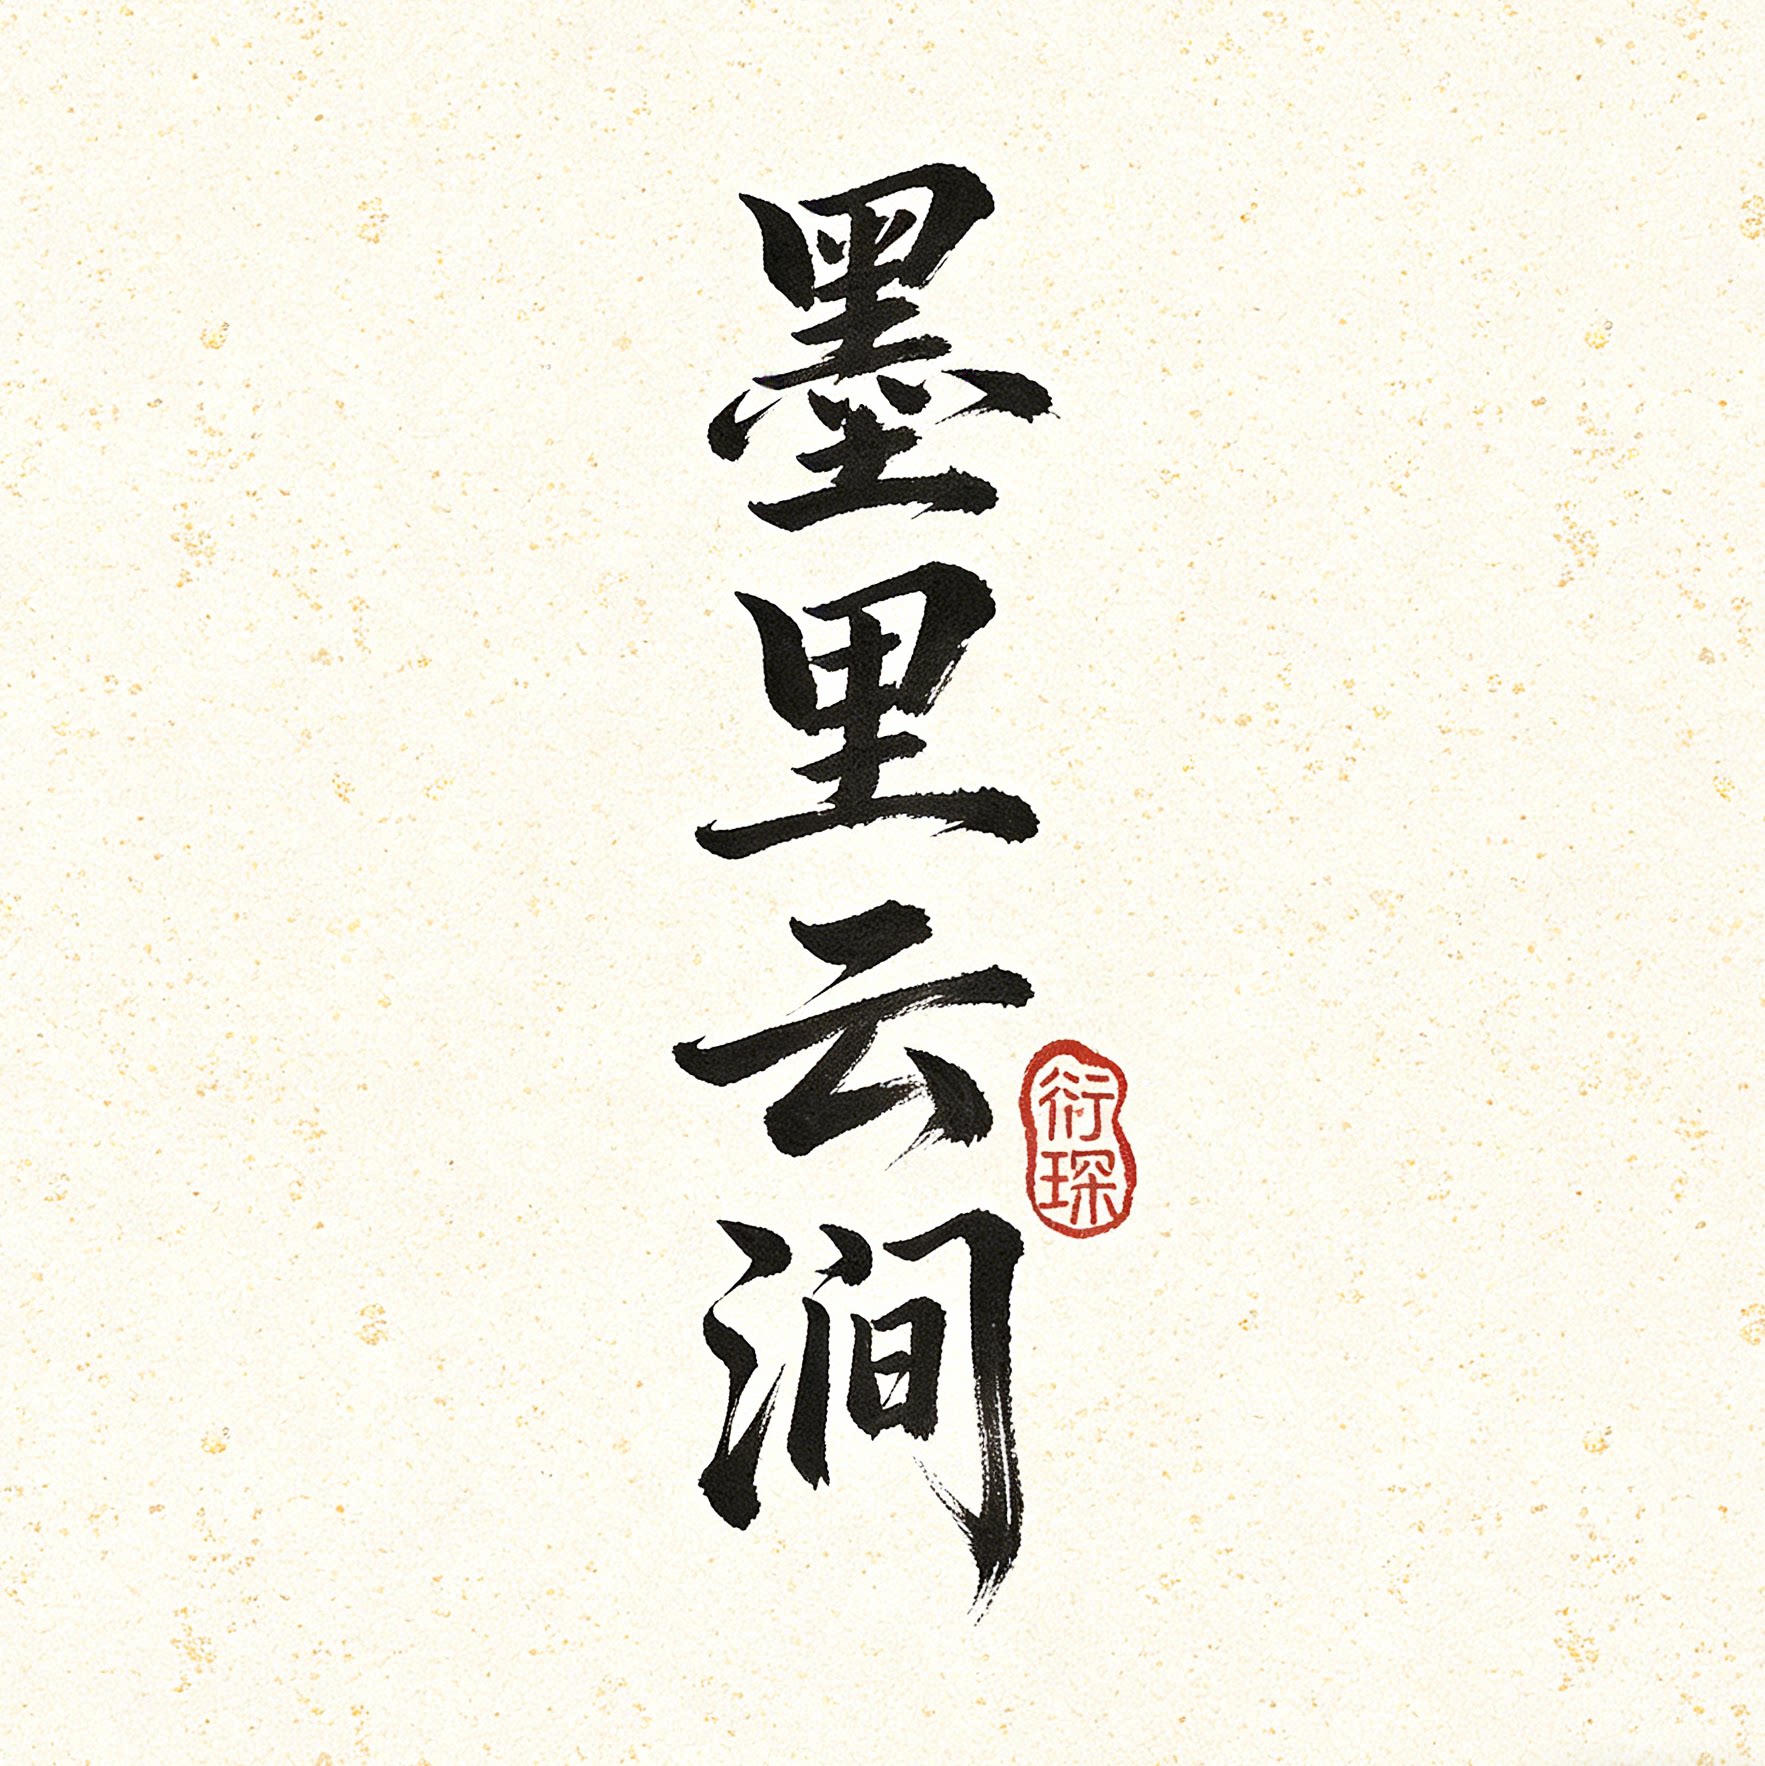 墨里云涧
衍琛